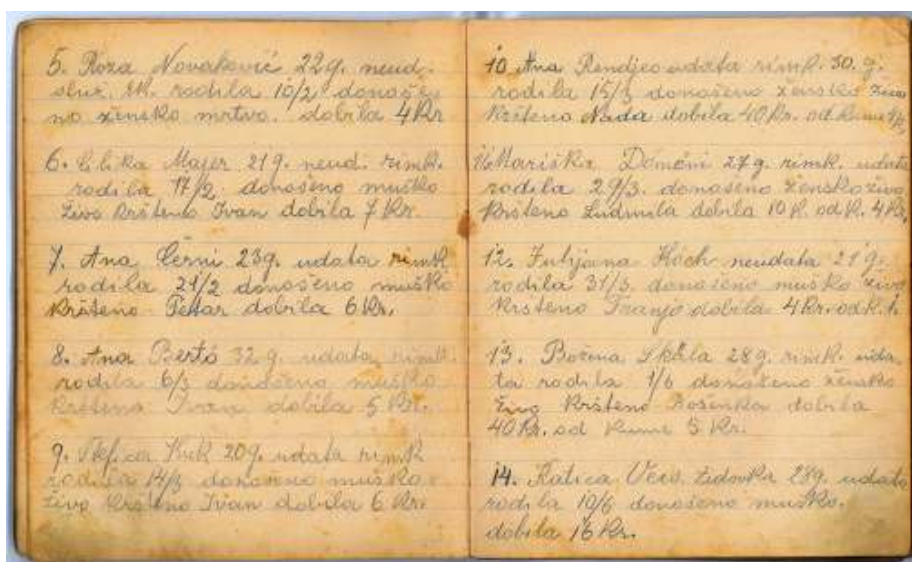 5. Roza Novaković 22g. neud.
služ. rodila 10/2 donoše
no žensko mrtvo. dobila 4 Kr
6. Cilika Majer 21g. neud. rimk.
rodila 17/2. donošeno muško
živo kršteno Ivan dobila 7 Kr.
7. Ana Černi 23g. udata rimk
rodila 21/2 donošeno muško
kršteno Petar dobila 6 Kr.
8. Ana Bertó 32 g. udata rimk.
rodila 6/3 donošeno muško
kršteno Ivan dobila 5 Kr.
9. Štefica Kuk 20g. udata rimk
rodila 14/3 donošeno muško
živo kršteno Ivan dobila 6 Kr.
10 Ana Rendjeo udata rimk. 30. g.
rodila 15/3 donošeno žensko živo
kršteno Nada dobila 40 Kr. od kume
Mariška Domčni 27g. rimk. udata
rodila 29/3. donošeno žensko živo
kršteno Ludmila dobila 10 K. od K. 4 Kr.
12. Julijana Hoch neudata 21 g.
rodila 31/3. donošeno muško živo
kršteno Franjo dobila 4 Kr. od K.
13. Božena Skála 28g. rimk. uda-
ta rodila 1/6 donošeno žensko
živo kršteno Boženka dobila
40 Kr. od kume 5 Kr.
14. Katica Veis. židovka 28g. udata
rodila 10/6 donošeno muško.
dobila 16 Kr.